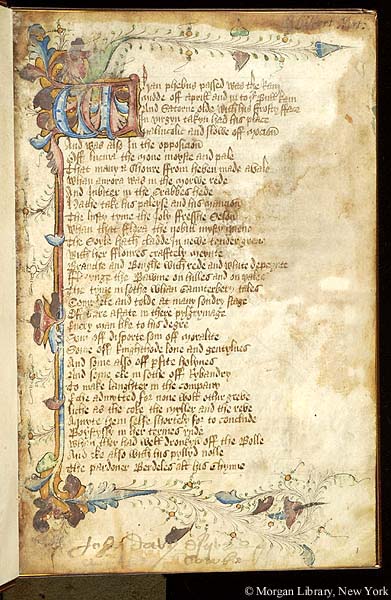 Whan phebus passed was the Ram
Midde off aprill and in to þe Bull kam
And Satorne olde with his frosty fface
In virgyn takyn had his place
Malincolic and slowe off mocion
And was also In the opposicion
Off lucina the mone moyste and pale
That many a Shoure ffrom heven made avale
Whan aurora was in the morwe rede
And Iubiter in the Crabbes hede
Hathe take his paleyse and his mancion
The lusty tyme the Joly ffresshe Seson
Whan that fflora the nobill myghty quene
the Soyle hath cladde in newe tender grene
With her fflowres craftely meynte
Braunche and Boughe with rede and white depeynte
the Bawme on hilles and on vales
The tyme in sothe whan Cannterbery tales
Complete and tolde at many sondry stage
Of Here astate in there pylgrymage
Every man like to his degre
Som off disporte som off moralite
Some off knighthode love and gentylnes
And some also off pfite holynes
And some eke in sothe off Rybaudry
To make laughter in the company
Eche admitted for none wolt other greve
liche as the coke the myller and the reve
Aquyte them selfe shortely for to conclude
Boystyssly in her termes rude
Whan they had well dronkyn off the Bolle
And eke also with his pyllyd nolle
The pardoner Berdeles all his Chynne
© Morgan Library, New York